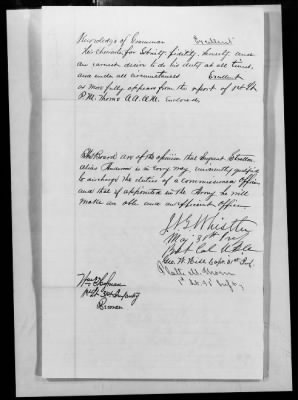 Knowledge of Grammar Excellent
His character for Sobriety, fidelity, honesty, and
an earnest desire to do his duty at all times,
and under all circumstances Excellent
as more fully appears from the report of 1st Lt.
P. M. Thorne A.A.A.G. enclosed.
The Board are of the opinion that Sergeant
alias is in every way eminently qualified
to discharge the duties of a commissioned officer
and that if appointed in the Army he will
make an able and an efficient officer
J N G Whistler
Maj
Bvt Col U.S.A.
Geo. W. Hill Capt.
1st Lt. 22 Infty
Infantry
Recorder